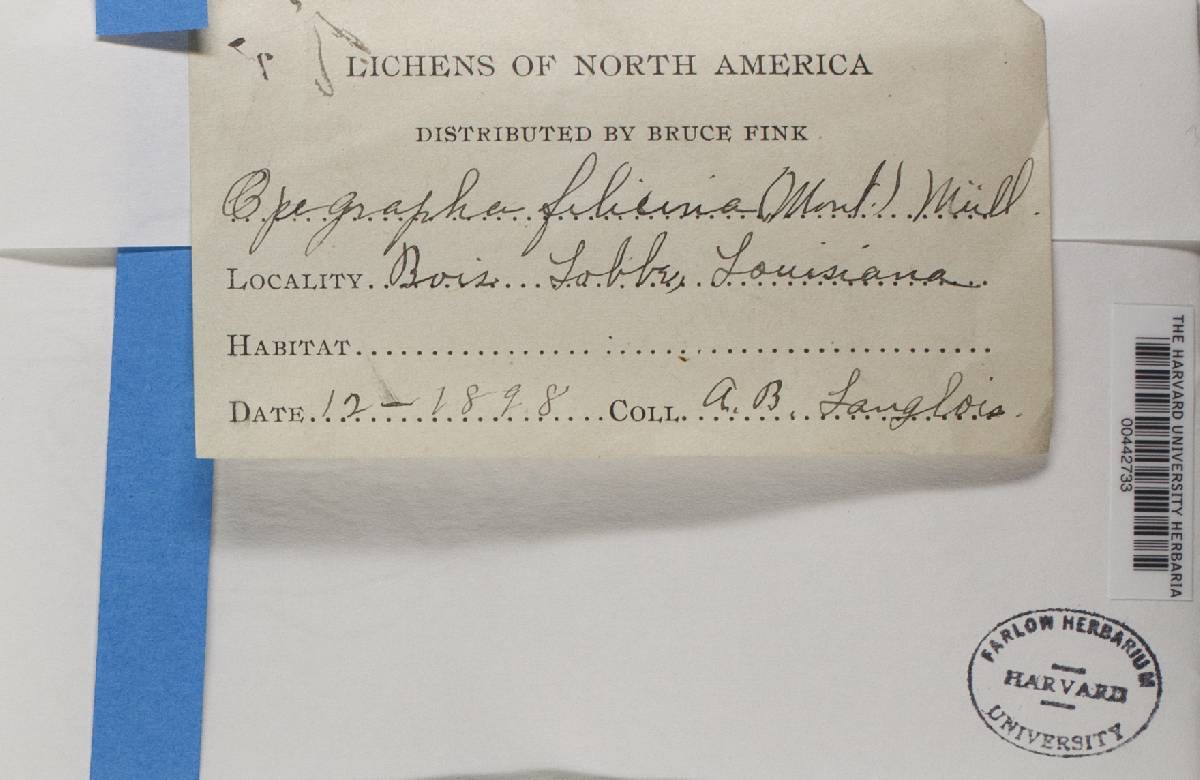 LICHENS OF NORTH AMERICA
DISTRIBUTED BY BRUCE FINK
Opegrapha filicina (Mont.) Müll.
LOCALITY. Bois Labbe, Louisiana
HABITAT
DATE 12 – 1898 COLL. A. B. Langlois
THE HARVARD UNIVERSITY HERBARIA
00442733
FARLOW HERBARIUM
HARVARD
UNIVERSITY